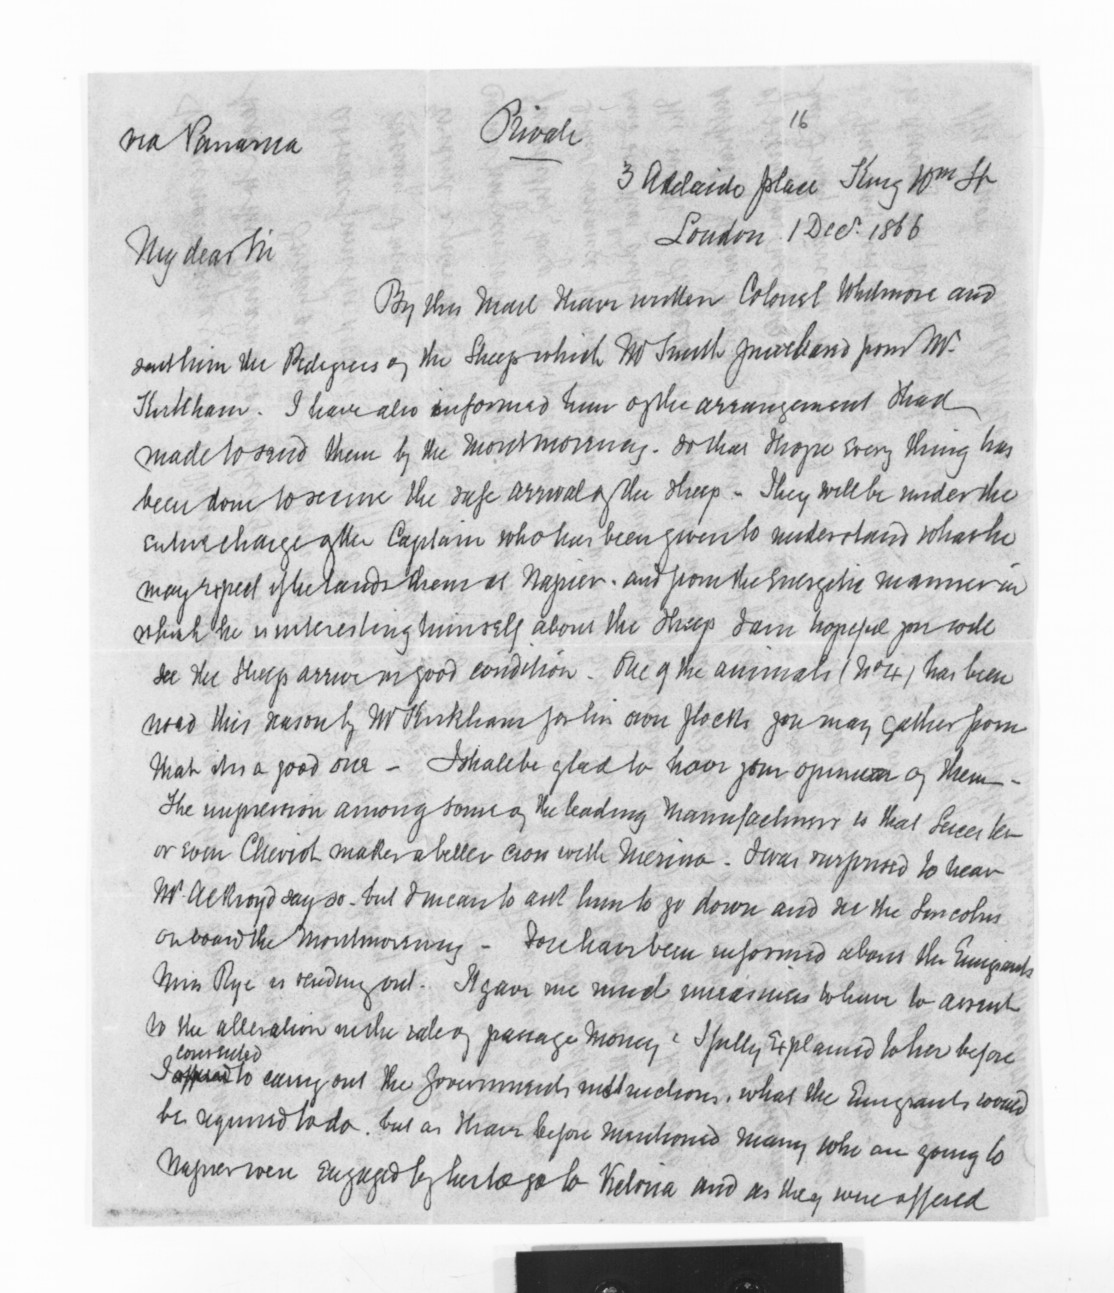 via Panama
Private
16
3 Adelaide place King Wm St
London 1 Decr. 1866
My dear Sir
By this Mail I have written Colonel Whitmore and
sent him the Pedigrees of the Sheep which Mr Smith purchased from Mr.
Kirkham. I have also informed him of the arrangement I had
made to send them by the Montmorency. so that I hope every thing has
been done to secure the safe arrival of the Sheep - They will be under the
entire charge of the Captain who has been given to understand what he
may expect if he lands them at Napier. and from the Energetic manner in
which he is interesting himself about the Sheep I am hopeful you will
see the Sheep arrive in good condition. One of the animals (No 4) has been
used this season by Mr Kirkham for his own flocks you may gather from
that it is a good one - I shall be glad to have your opinion of them -
The impression among some of the leading Manufacturers is that Leicester
or even Cheviot makes a better cross with Merino - I was surprised to hear
Mr. Ackroyd say so. but I mean to ask him to go down and see the Lincolns
on board the Montmorency - You have been informed about the Emigrants
Miss Rye is sending out. It gave me much uneasiness to have to assent
to the alteration in the rate of passage Money. I fully Explained to her before
consented
I to carry out the Governments instructions, what the Emigrants would
be required to do. but as I have before mentioned many who are going to
Napier were Engaged by her to go to Victoria and as they were offered